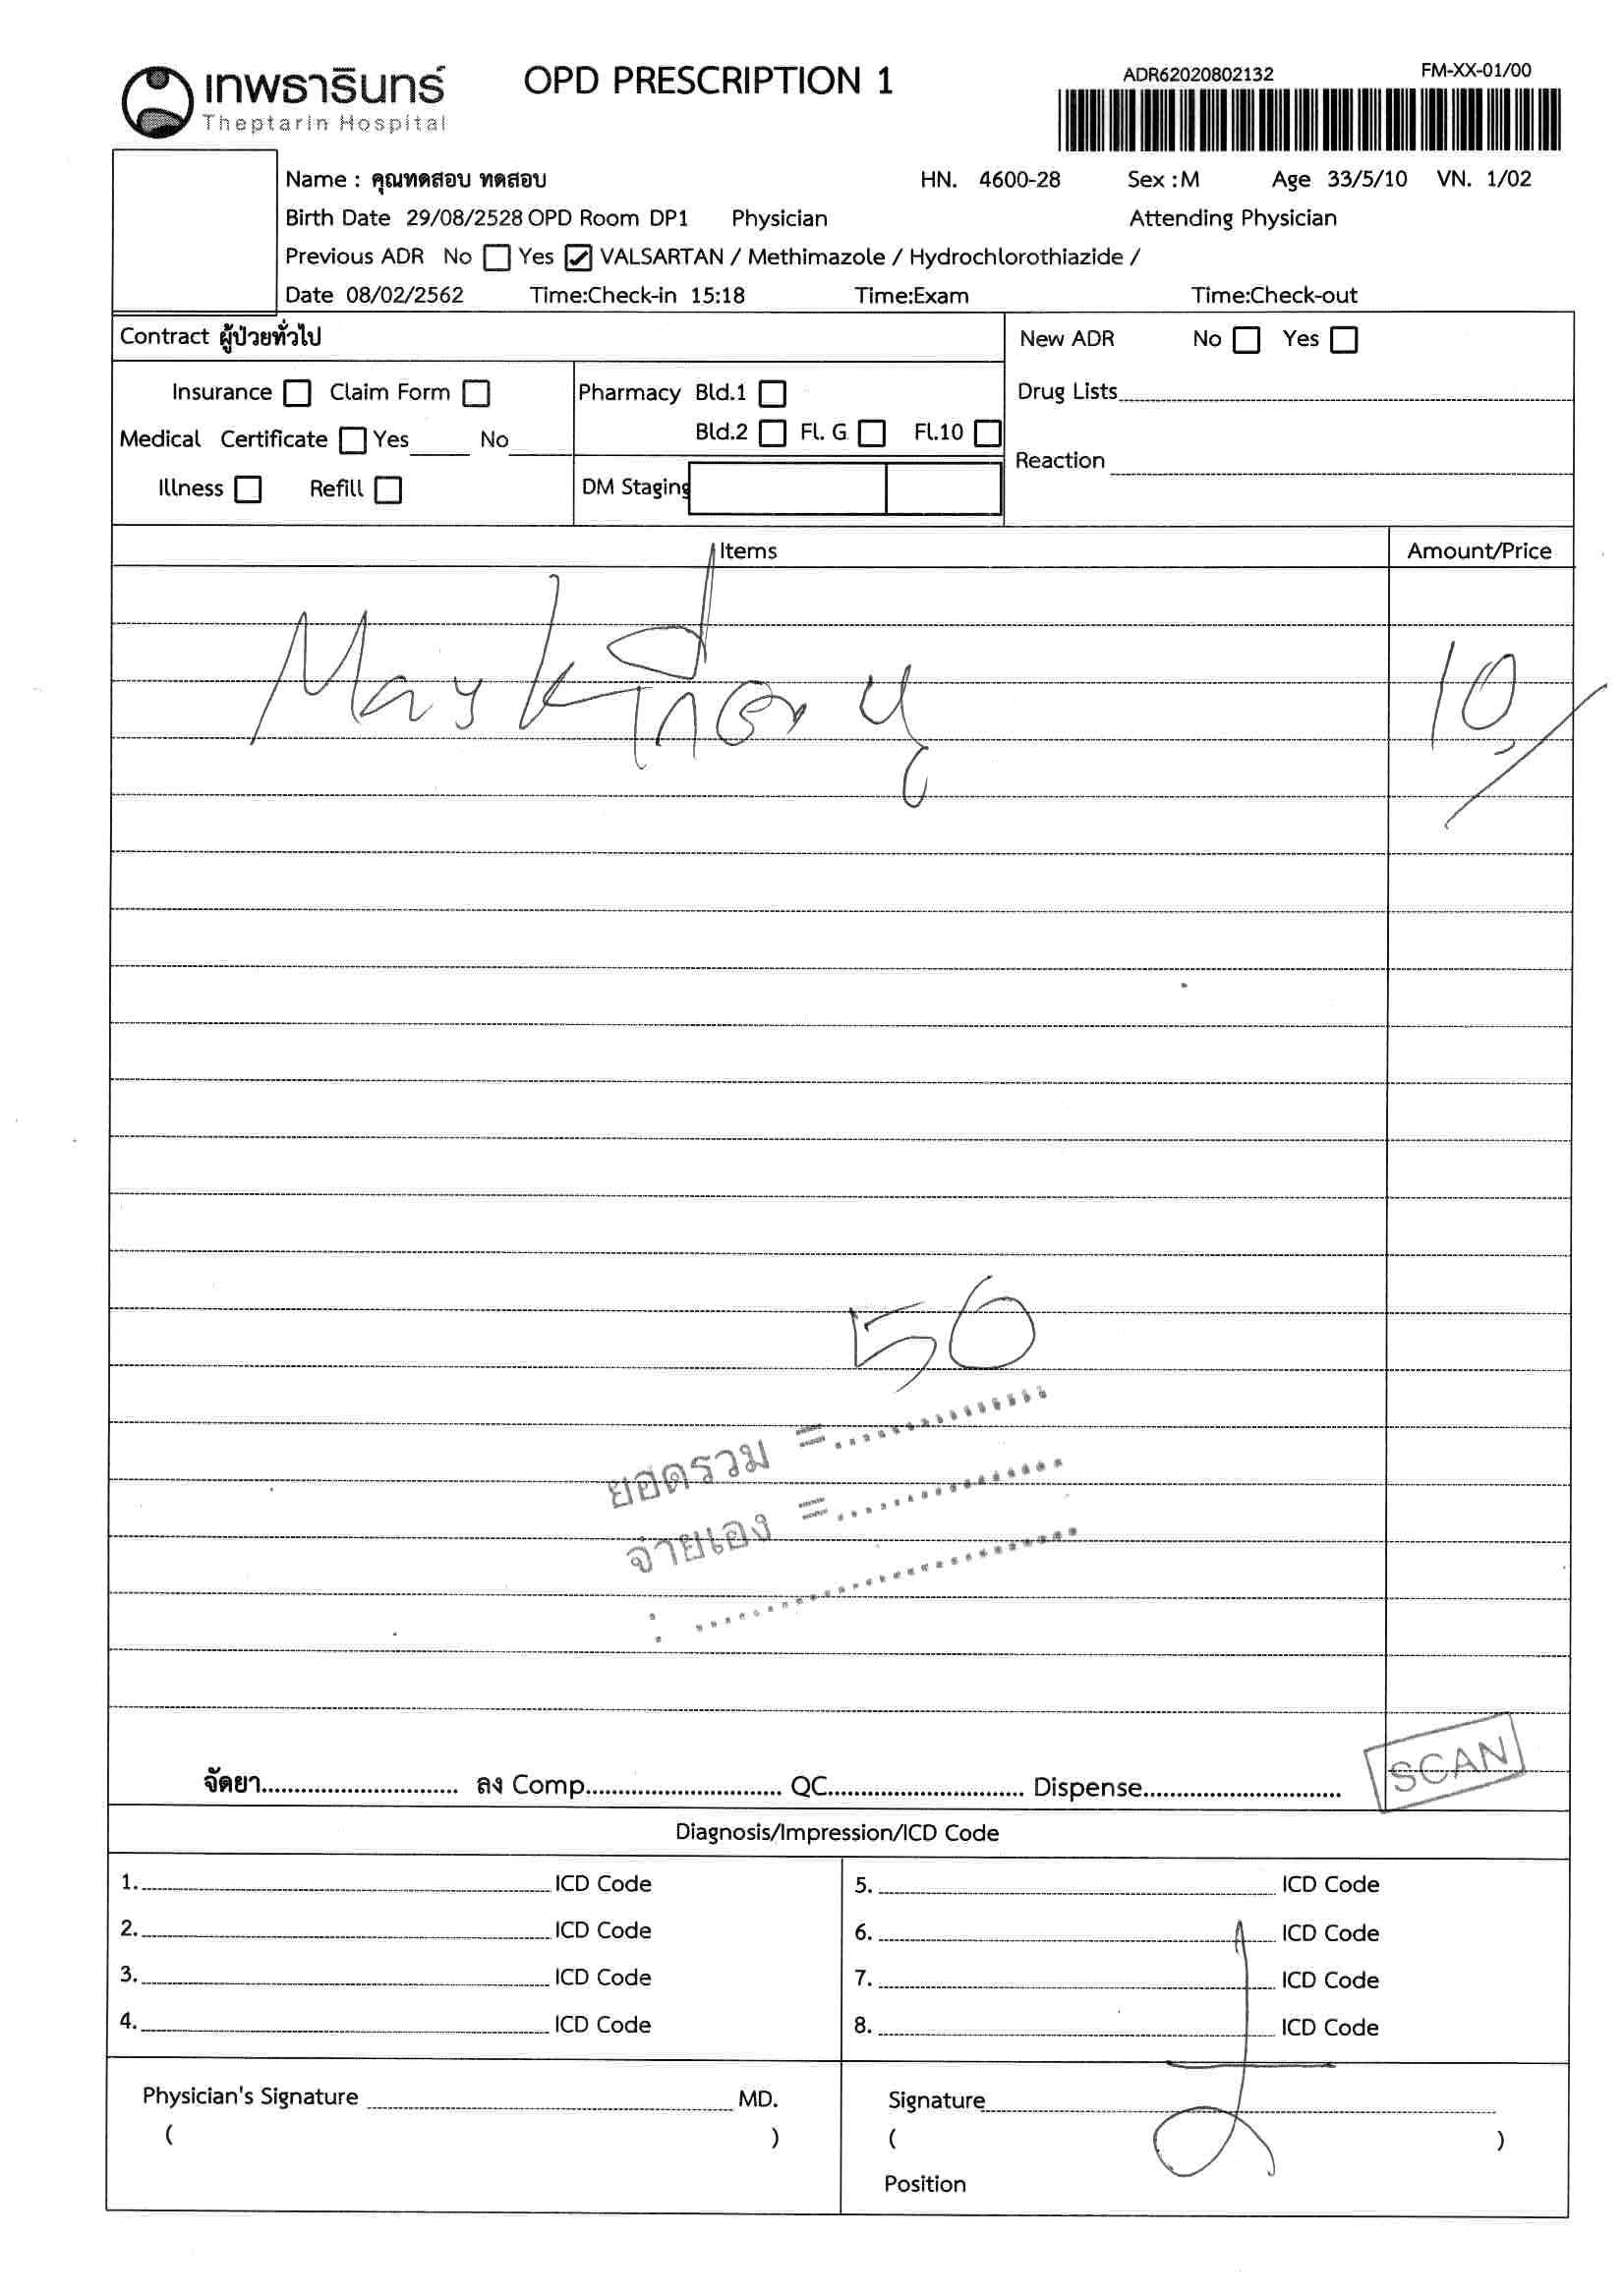 เทพธารินทร์
Theptarin Hospital
OPD PRESCRIPTION 1
ADR62020802132
FM-XX-01/00
Name : คุณทดสอบ ทดสอบ HN. 4600-28 Sex :M Age 33/5/10 VN. 1/02
Birth Date 29/08/2528 OPD Room DP1 Physician Attending Physician
Previous ADR No Yes VALSARTAN / Methimazole / Hydrochlorothiazide /
Date 08/02/2562 Time:Check-in 15:18 Time:Exam Time:Check-out
Contract ผู้ป่วยทั่วไป
New ADR No Yes
Insurance Claim Form
Pharmacy Bld.1
Drug Lists
Medical Certificate Yes No
Bld.2 Fl. G Fl.10
Reaction
Illness Refill
DM Staging
Items Amount/Price
Mask 10
50
ยอดรวม =
จ่ายเอง =
:
SCAN
จัดยา ลง Comp QC Dispense
Diagnosis/Impression/ICD Code
1. ICD Code 5. ICD Code
2. ICD Code 6. ICD Code
3. ICD Code 7. ICD Code
4. ICD Code 8. ICD Code
Physician's Signature MD. Signature
( ) ( )
Position